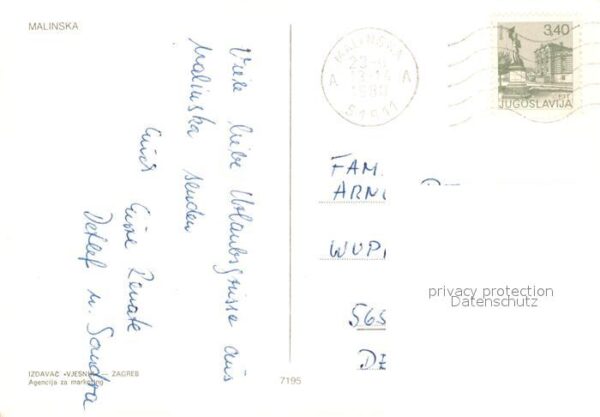 MALINSKA
Viele liebe Urlaubsgrüsse aus
Malinska senden
Euch Eure Renate
Detlef u. Sandra
IZDAVAČ «VJESNIK» — ZAGREB
Agencija za marketing
7195
MALINSKA
A A
1980
51511
3,40
JUGOSLAVIJA
FAM.
ARN
WUP
565
DZ
privacy protection
Datenschutz